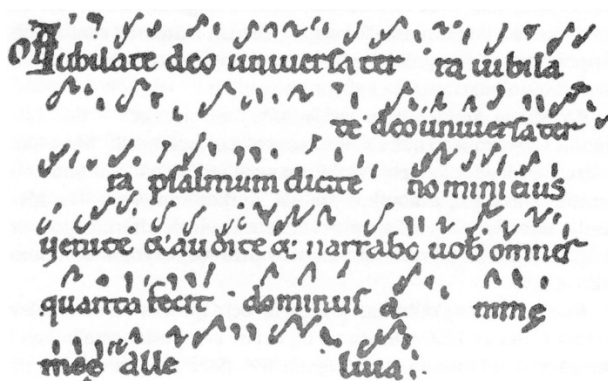 Of Iubilate deo universa ter ra iubila
te deo universa ter
ra psalmum dicite nomini eius
venite & audite & narrabo vob omnes
quanta fecit dominus & nimę
męę alle luia: